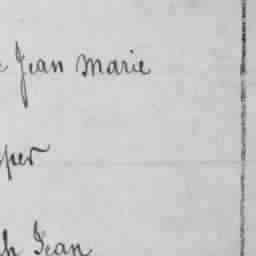 e Jean Marie
sper
ph Jean